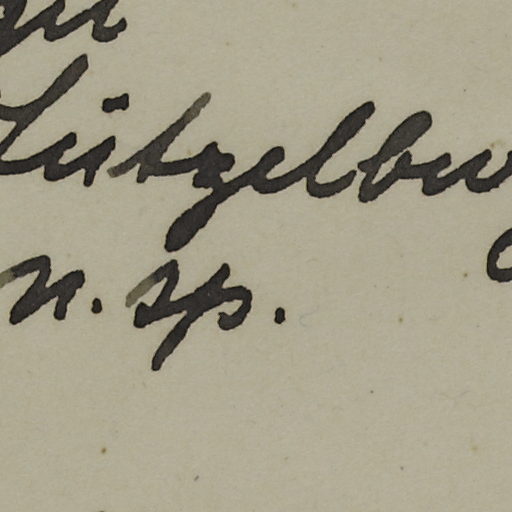 Lützelbu
n. sp.